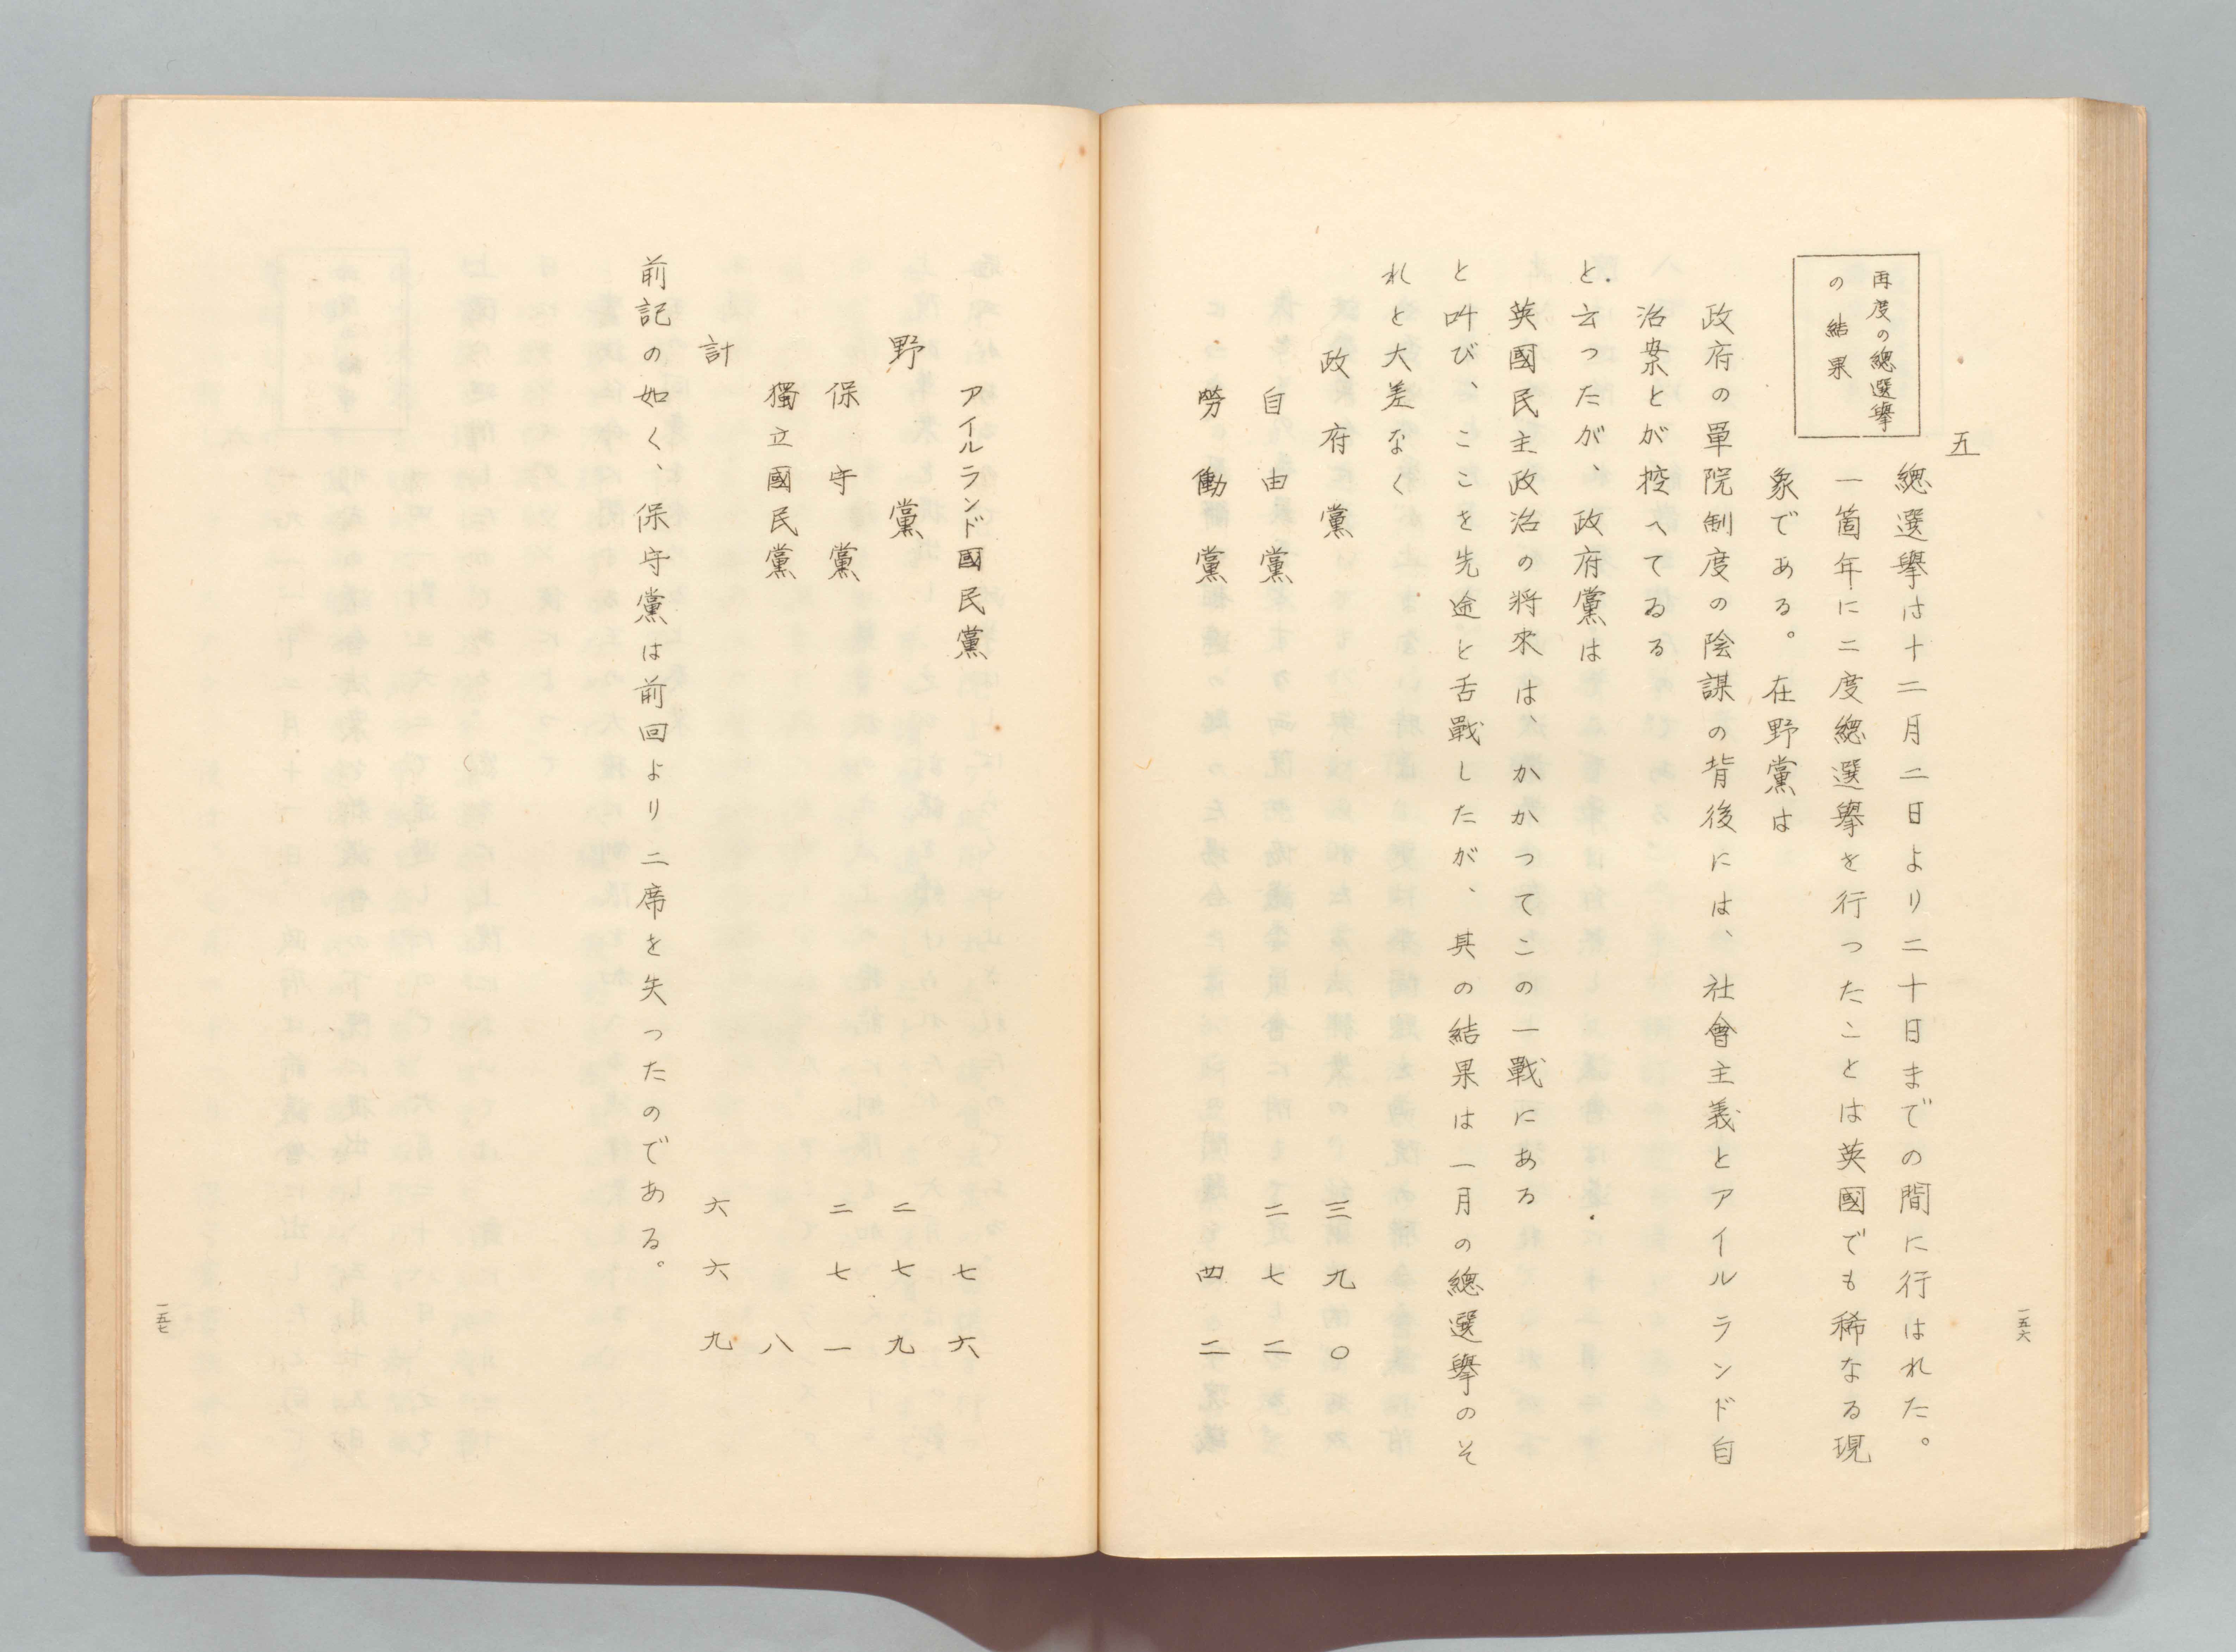 五
再度の總選擧
の結果
總選擧は十二月二日より二十日までの間に行はれた。
一箇年に二度總選擧を行つたことは英國でも稀なる現
象である。在野黨は
政府の單院制度の陰謀の背後には、社會主義とアイルランド自
治案とが控へてゐる
と云つたが、政府黨は
英國民主政治の將來は、かかつてこの一戰にある
と叫び、ここを先途と舌戰したが、其の結果は一月の總選擧のそ
れと大差なく
政府黨 三九〇
自由黨 二七二
勞働黨 四二
一五六
アイルランド國民黨 七六
野黨 二七九
保守黨 二七一
獨立國民黨 八
計 六六九
前記の如く、保守黨は前回より二席を失つたのである。
一五七